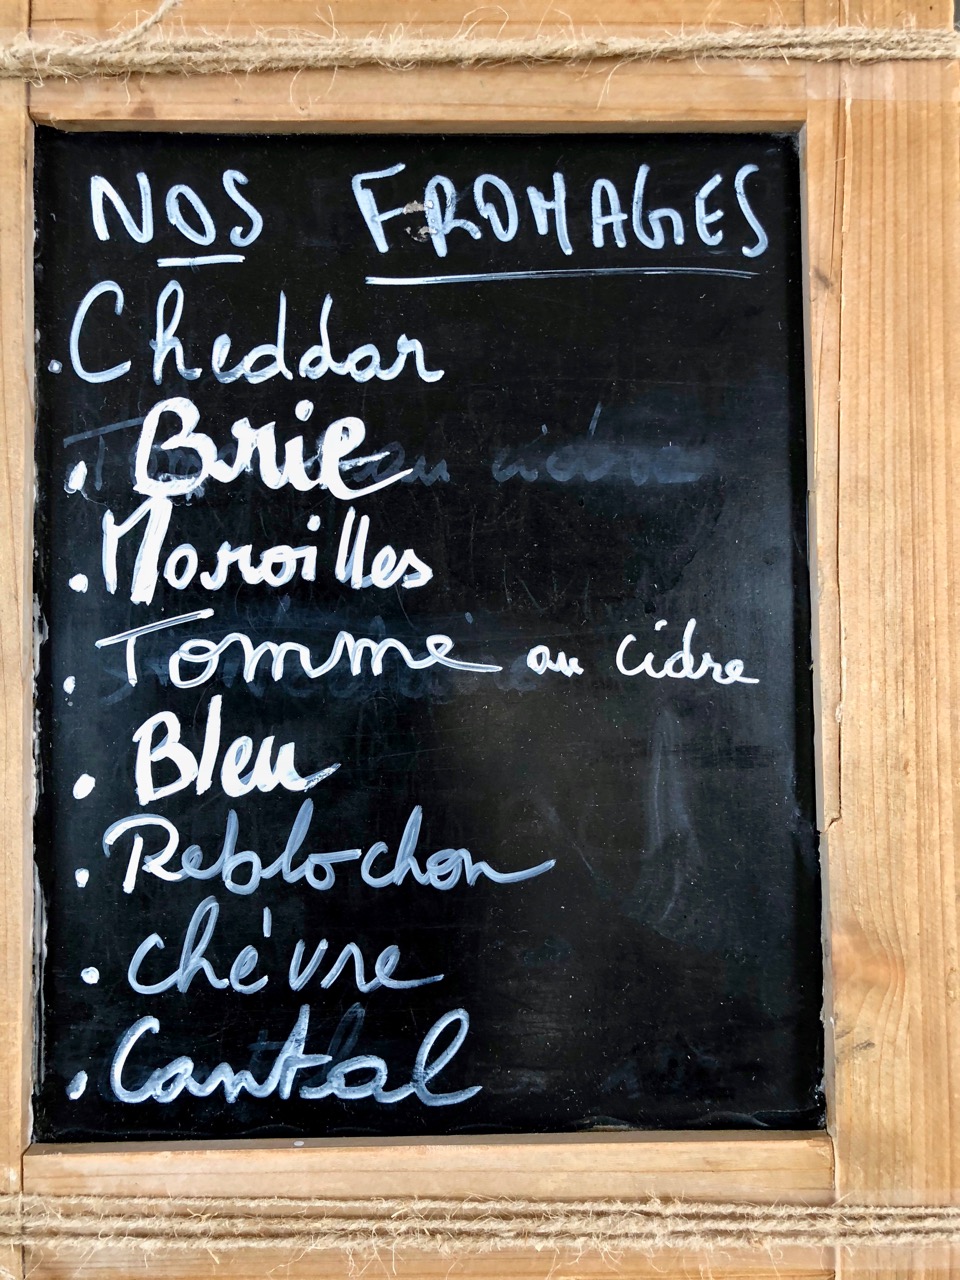 NOS FROMAGES
. Cheddar
. Brie
. Maroilles
. Tomme au cidre
. Bleu
. Reblochon
. chèvre
. Cantal